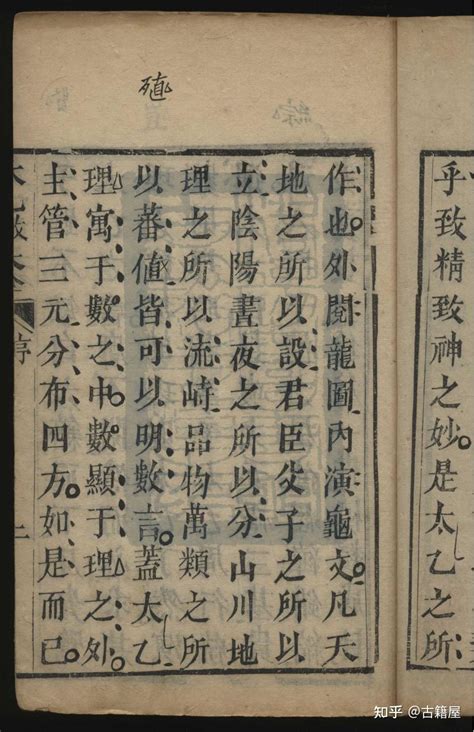 乎致精致神之妙是太乙之所
殖
作也外閱龍圖內演龜文凡天
地之所以設君臣父子之所以
立陰陽晝夜之所以分山川地
理之所以流峙品物萬類之所
以蕃値皆可以明數言蓋太乙
理寓于數之中數顯于理之外
主管三元分布四方如是而已
序
知乎 @古籍屋